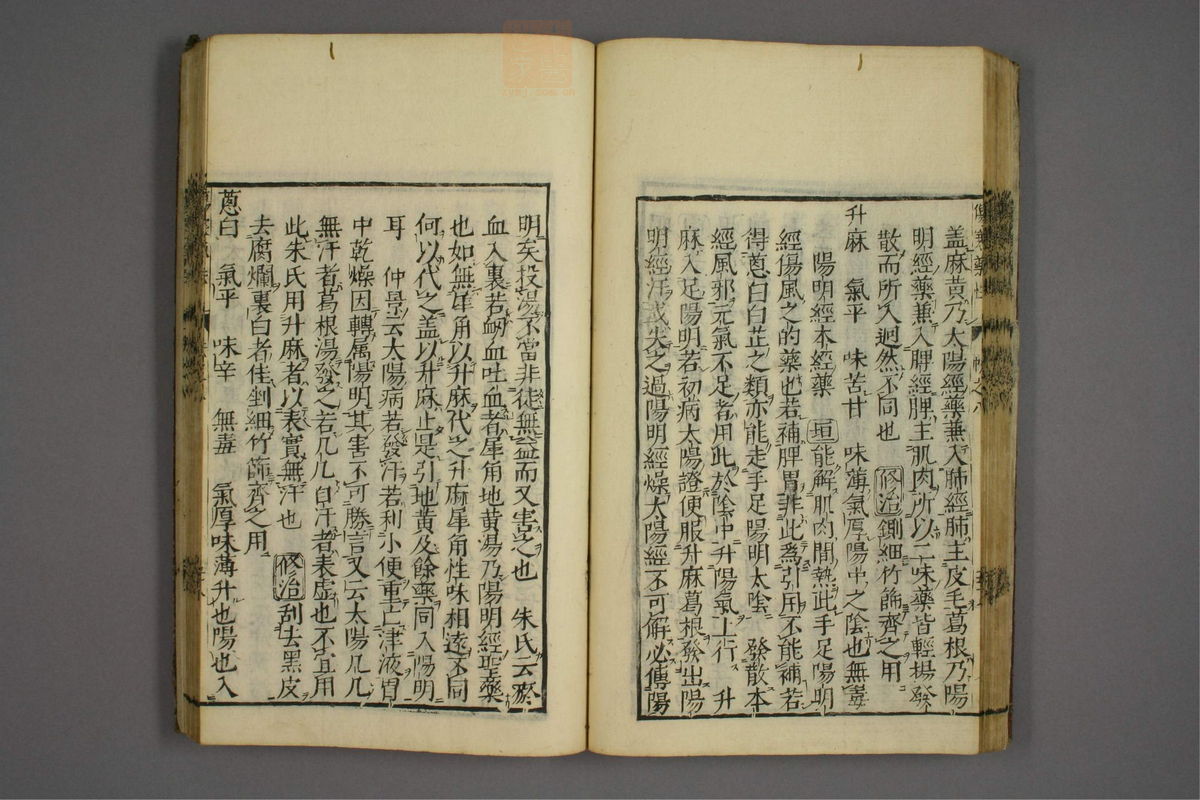 盖麻黄乃太陽經藥兼入肺經肺主皮毛葛根乃陽
明經藥兼入脾經脾主肌肉所以二味藥皆輕揚發
散而所入迥然不同也 修治 鍘細竹篩齊之用
升麻 氣平 味苦甘 味薄氣厚陽中之陰也無毒
陽明經本經藥 垣 能解肌肉間熱此手足陽明
經傷風之的藥也若補脾胃非此爲引用不能補若
得蔥白白芷之類亦能走手足陽明太陰 發散本
經風邪元氣不足者用此於陰中升陽氣上行 升
麻入足陽明若初病太陽證便服升麻葛根發出陽
明經汗或失之過陽明經燥太陽經不可解必傳陽
明矣投湯不當非徒無益而又害之也 朱氏云瘀
血入裏若衂血吐血者犀角地黄湯乃陽明經聖藥
也如無犀角以升麻代之升麻犀角性味相遠不同
何以代之盖以升麻止是引地黄及餘藥同入陽明
耳 仲景云太陽病若發汗若利小便重亡津液胃
中乾燥因轉属陽明其害不可勝言又云太陽几几
無汗者葛根湯發之若几几自汗者表虚也不宜用
此朱氏用升麻者以表實無汗也 修治 刮去黑皮
去腐爛裏白者佳剉細竹篩齊之用
蔥白 氣平 味辛 無毒 氣厚味薄升也陽也入